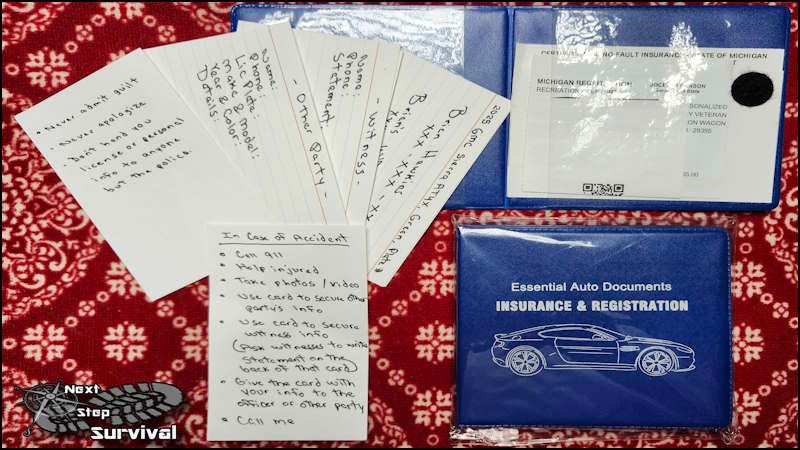 • Never admit guilt
• Never apologize
• Don't hand you
license or personal
info to anyone
but the police.
Name:
Phone:
Lic Plate:
Make & Model:
Year & Color:
Details:
- Other Party -
Name:
Phone:
Statement:
- Witness -
Brian Hawkins
xxx-xxx-xx
2025 GMC Sierra AT4X, Green, Plate
NO-FAULT INSURANCE
STATE OF MICHIGAN
MICHIGAN
RECREATION
SONALIZED
Y VETERAN
ON WAGON
In Case of Accident
• Call 911
• Help injured
• Take photos / video
• Use card to secure other
party's info
• Use card to secure
witness info
(Ask witnesses to write
statement on the
back of that card)
• Give the card with
your info to the
officer or other party
• Call me
Essential Auto Documents
INSURANCE & REGISTRATION
Next
Step
Survival